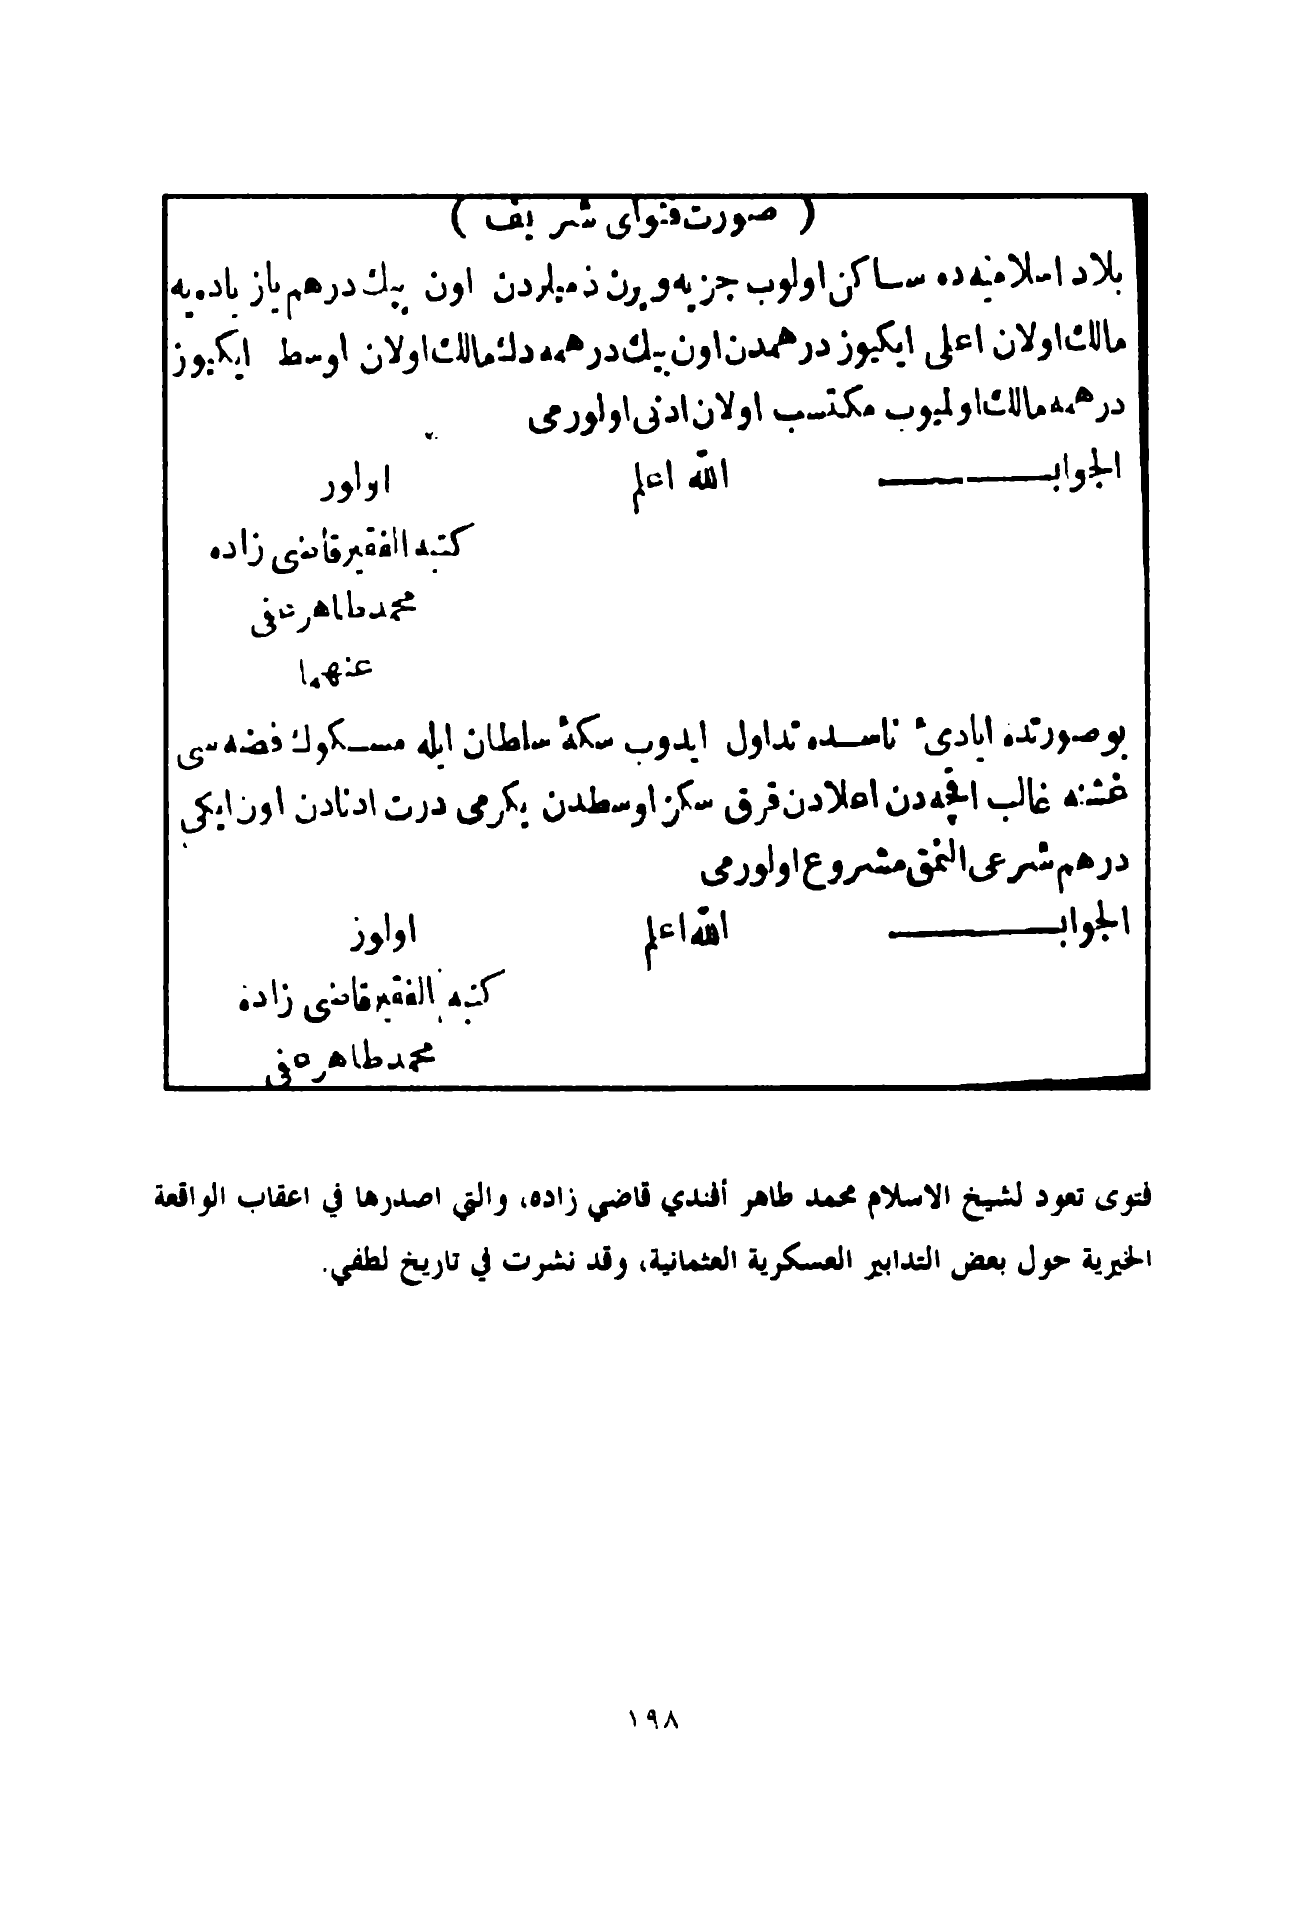 ( صورت فتوای شریف )
بلاد اسلامیه ده ساکن اولوب جزیه ویرن ذمیلردن اون بیك درهم یاز یاده یه
مالك اولان اعلی ایکیوز درهمدن اون بیك درهمه دك مالك اولان اوسط ایکیوز
درهمه مالك اولمیوب مکتسب اولان ادنی اولورمی
الجواب الله اعلم اولور
کتبه الفقیر قاضی زاده
محمد طاهر عفی
عنهما
بو صورتده ایادیٔ ناسده تداول ایدوب سکهٔ سلطان ایله مسکوك فضه سی
غشنه غالب اقچه دن اعلادن قرق سکز اوسطدن یکرمی درت ادنادن اون ایکی
درهم شرعی المق مشروع اولورمی
الجواب الله اعلم اولور
کتبه الفقیر قاضی زاده
محمد طاهر عفی
فتوى تعود لشيخ الاسلام محمد طاهر أفندي قاضي زاده، والتي اصدرها في اعقاب الواقعة
الخيرية حول بعض التدابير العسكرية العثمانية، وقد نشرت في تاريخ لطفي.
١٩٨